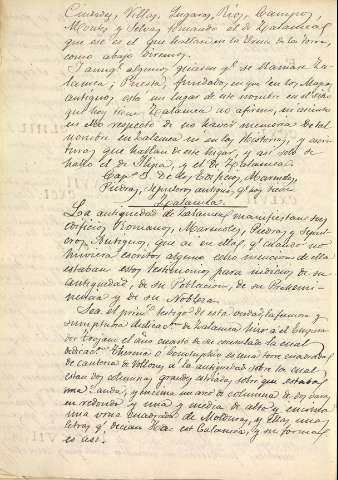 Ciudades, Villas, Lugares, Rios, Campos,
Montes y Selvas, tomando el de Zalamea
que ese es el que hallan en la Urna de la torre,
como abajo diremos.
Tamvien algunos quieren qe se llamase Za-
lamea, fundados, en que en los Mapas
antiguos esta un lugar de este nombre en el sitio
que hoy tiene Zalamea no afirmo, ni
en ello respecto de no haver memoria de tal
nombre en Zalamea ni en las Historias, y escri-
turas que hablan de ese lugar, y asi solo se
halla el de Ilipa, y el de Zalamea.
Cap. 5 De los Edificios, Marmoles,
Piedras, Sepulcros antiguos, qe hoy hay en
Zalamea
La antiguedad de Zalamea manifiestan sus
edificios Romanos, Marmoles, Piedras y Sepul-
cros Antiguos, que ai en ella, y cuando no
huviera escritos alguno echo mencion de ella
estaban estos testimonios para indicios de su
antiguedad, de su Poblacion, de su Prehemi-
nencia y de su Nobleza.
Sea el primr. testigo de esta verdad la famosa y
sumptuosa dedicacn. de Zalamea hizo a el Empera-
dor Trajano el año cuarto de su consulado la cual
dedicacn. en una torre cuadrada
de canteria de a la antiguedad sobre la cual
estan dos columnas grandes istriadas sobre que estaba
una y encima un arco de columna de dos varas
en redondo y una y media de alto y encima
una urna cuadrada de Molduras, y Ellas unas
letras qe decian Hac est Zalamea, y su forma
es asi.